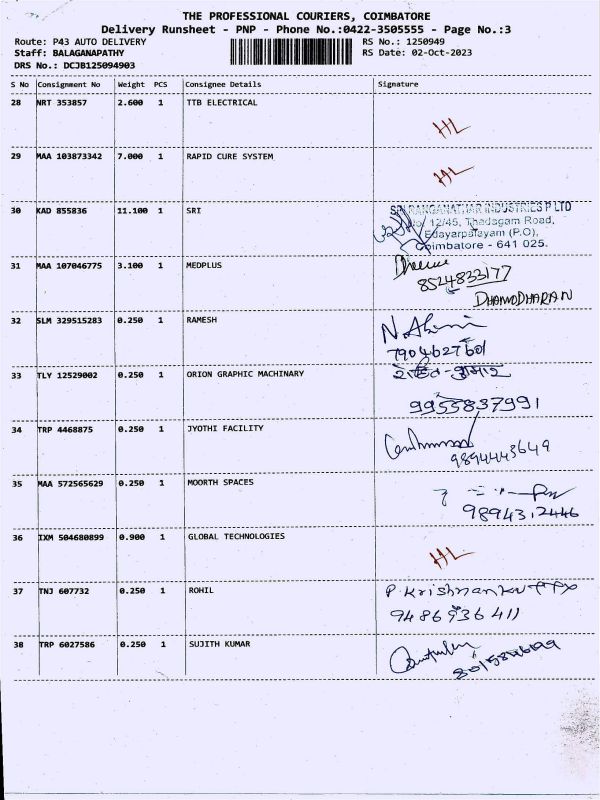 THE PROFESSIONAL COURIERS, COIMBATORE
Delivery Runsheet - PNP - Phone No.:0422-3505555 - Page No.:3
Route: P43 AUTO DELIVERY RS No.: 1250949
Staff: BALAGANAPATHY RS Date: 02-Oct-2023
DRS No.: DCJB125094903
S No Consignment No Weight PCS Consignee Details Signature
28 NRT 353857 2.600 1 TTB ELECTRICAL
HL
29 MAA 103873342 7.000 1 RAPID CURE SYSTEM
HL
30 KAD 855836 11.100 1 SRI
SRI RANGANATHAR INDUSTRIES P LTD
No. 12/45, Thadagam Road,
Edayarpalayam (P.O),
Coimbatore - 641 025.
31 MAA 107046775 3.100 1 MEDPLUS
8524833177
DHAMODHARAN
32 SLM 329515283 0.250 1 RAMESH
7904627601
33 TLY 12529002 0.250 1 ORION GRAPHIC MACHINARY
9955837991
34 TRP 4468875 0.250 1 JYOTHI FACILITY
9894443649
35 MAA 572565629 0.250 1 MOORTH SPACES
9894312446
36 IXM 504680899 0.900 1 GLOBAL TECHNOLOGIES
HL
37 TNJ 607732 0.250 1 ROHIL
9486936411
38 TRP 6027586 0.250 1 SUJITH KUMAR